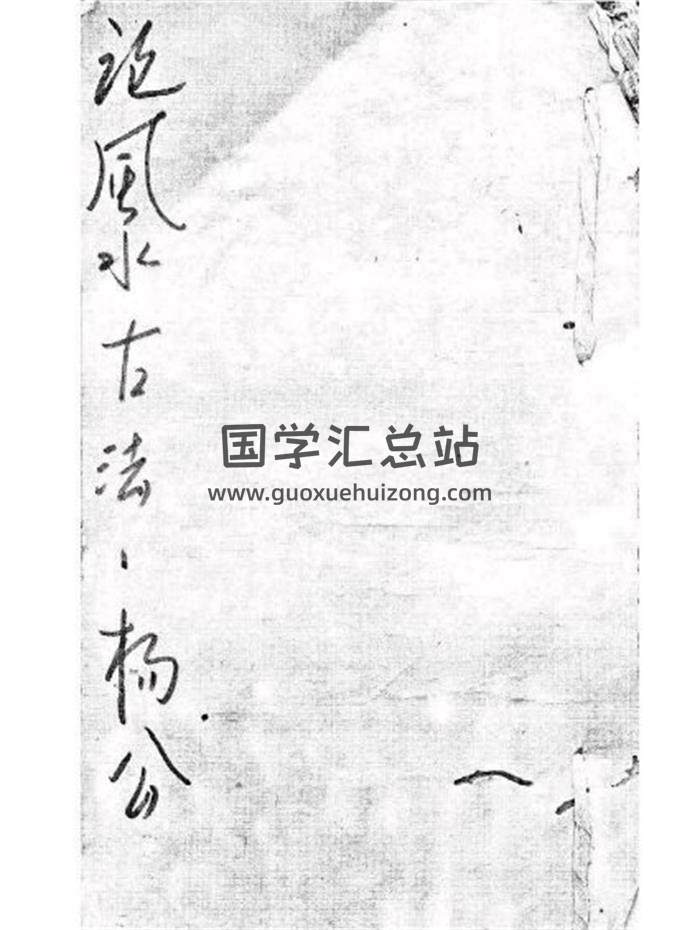 论風水古法、杨公
国学汇总站
www.guoxuehuizong.com